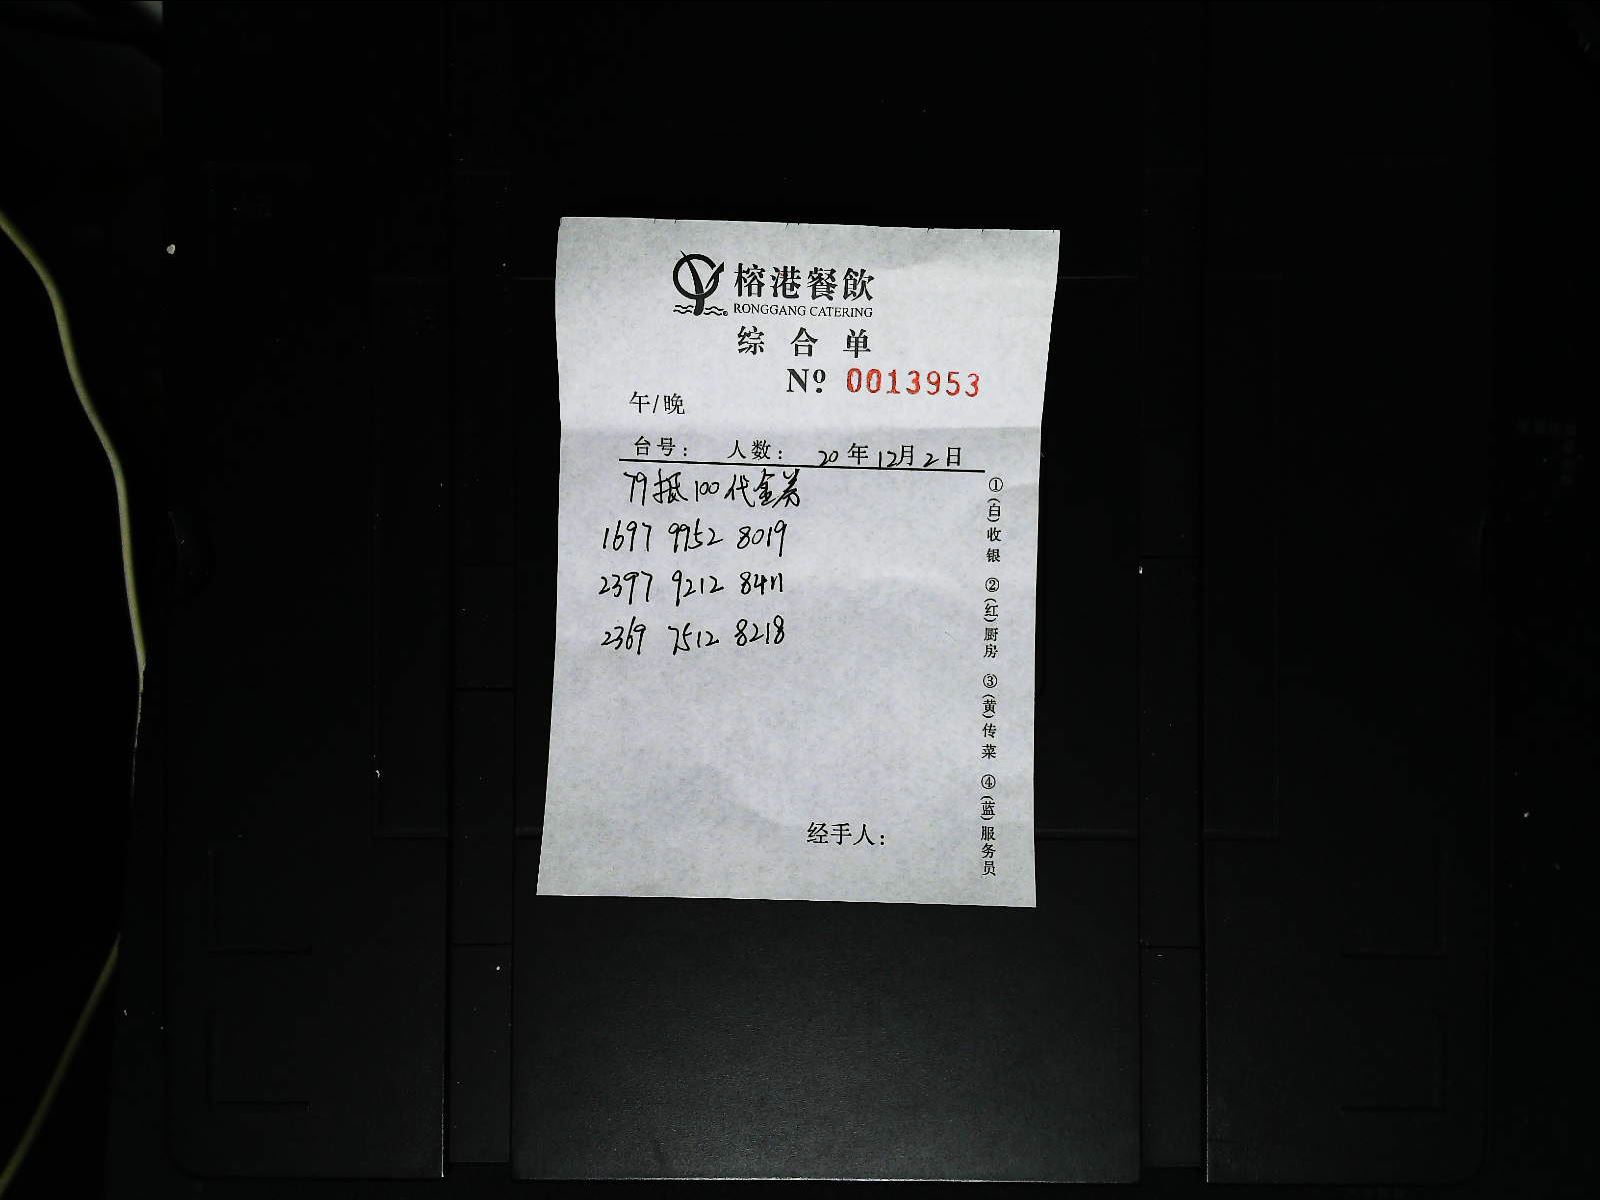 榕港餐飲
RONGGANG CATERING
综合单
Nº 0013953
午/晚
台号： 人数： 20年12月2日
79抵100代金券
1697 9952 8019
2397 9212 8411
2369 7512 8218
经手人：
①(白)收银 ②(红)厨房 ③(黄)传菜 ④(蓝)服务员